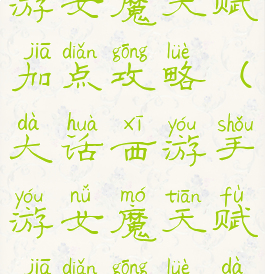 游女魔天赋
jiā diǎn gōng lüè
加点攻略（
dà huà xī yóu shǒu
大话西游手
yóu nǚ mó tiān fù
游女魔天赋
jiā diǎn gōng lüè dà